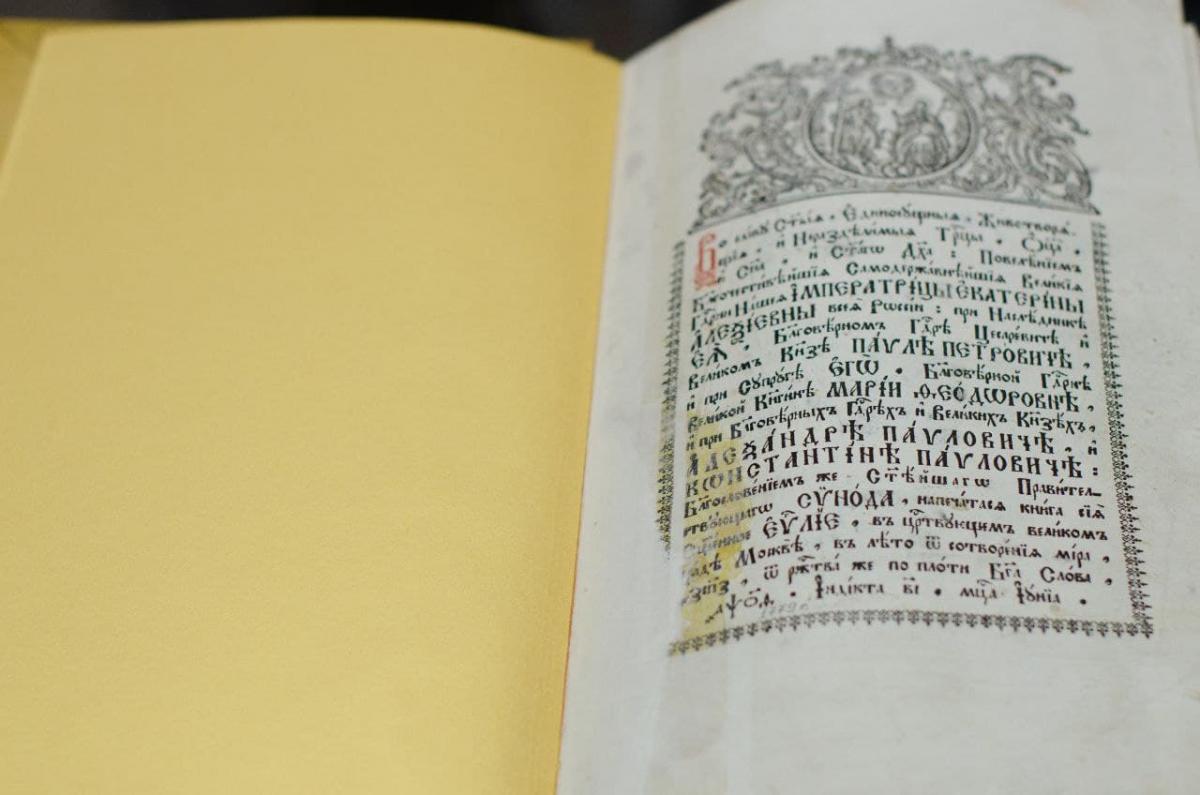 Во славу Ст҃ыѧ, Є҆диносѹ́щныѧ, Животворѧ́-
щїѧ, и Нераздѣли́мыѧ Трⷪ҇цы, Ѻ҆ц҃а̀,
и Сн҃а, и Ст҃а́гѡ Дх҃а: Повелѣ́нїемъ
Бл҃гочести́вѣйшїѧ Самодержа́внѣйшїѧ Вели́кїѧ
Гдⷭ҇рни На́шеѧ І҆МПЕРАТРИ́ЦЫ Є҆КАТЕРИ́НЫ
А҆ЛЕѮІ́ЕВНЫ всеѧ̀ Рѡссі́и: при Наслѣ́дникѣ
Є҆Ѧ̀, Бл҃говѣ́рномъ Гдⷭ҇рѣ Цесаре́вичѣ и
Вели́комъ Кн҃зѣ ПА́ѴЛѢ ПЕТРО́ВИЧѢ,
и при Сѹпрѹ́гѣ Є҆ГѠ̀, Бл҃говѣ́рной Гдⷭ҇рнѣ
Вели́кой Кн҃ги́нѣ МАРІ́И ѲЕО́ДѠРОВНѢ,
и при Бл҃говѣ́рныхъ Гдⷭ҇рехъ и Вели́кихъ Кн҃зехъ,
А҆ЛЕѮА́НДРѢ ПА́ѴЛОВИЧѢ, и
КѠНСТАНТІ́НѢ ПА́ѴЛОВИЧѢ:
Бл҃гослове́нїемъ же Ст҃ѣ́йшагѡ Прави́тел-
ствѹющагѡ СѴНО́ДА, напеча́тасѧ кни́га сїѧ̀
Сщ҃е́нное Є҆ѴⷢЛІЕ, въ црⷭ҇твѹющемъ вели́комъ
гра́дѣ Москвѣ̀, въ лѣ́то ѿ сотворе́нїѧ мі́ра,
ѿ ржⷭ҇тва́ же по пло́ти Бг҃а Сло́ва,
҂аѱо҃ѳ, І҆ндікта в҃і, мцⷭ҇а І҆ѹ́нїа.
1779 г